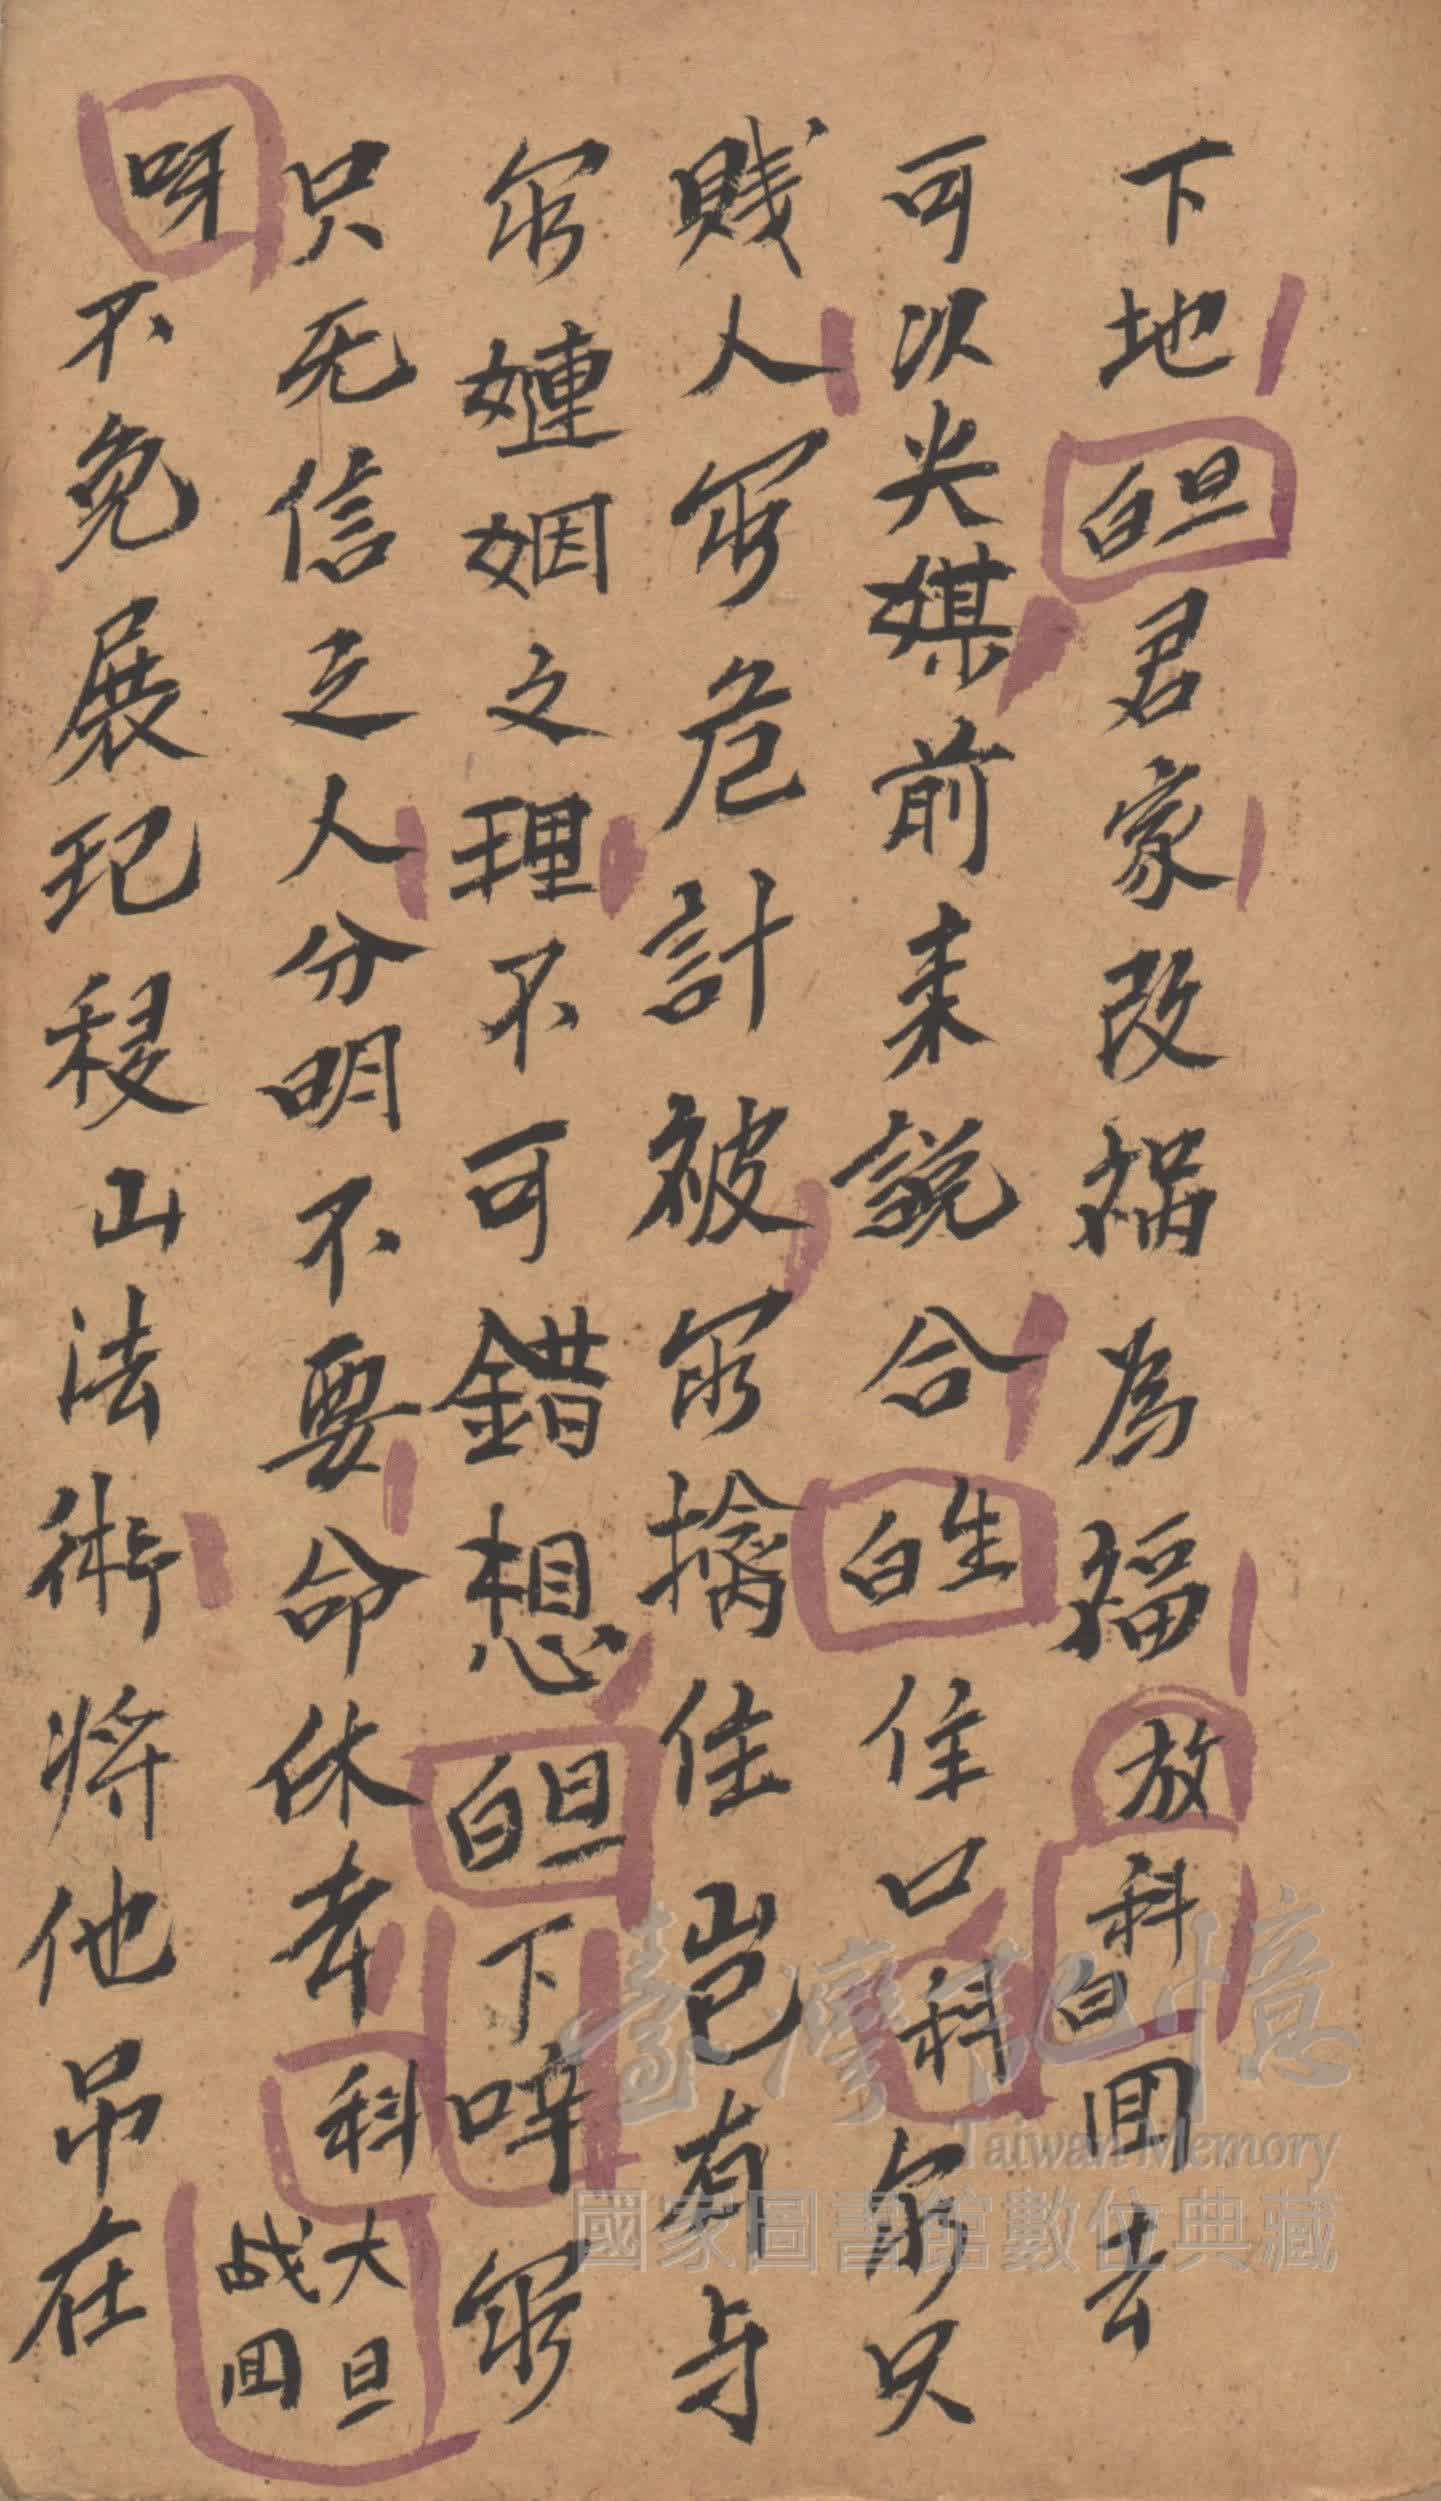 下地旦白君家改禍為福放科白囬去
可以央媒前来説合生白住口科尔只
賤人尔危計被尔擒住岂有与
尔嫥姻之理不可錯想旦白下啐尔
只无信之人分明不要命休走科大旦战囬
呀不免展玘移山法術将他吊在
臺灣記憶
Taiwan Memory
國家圖書館數位典藏